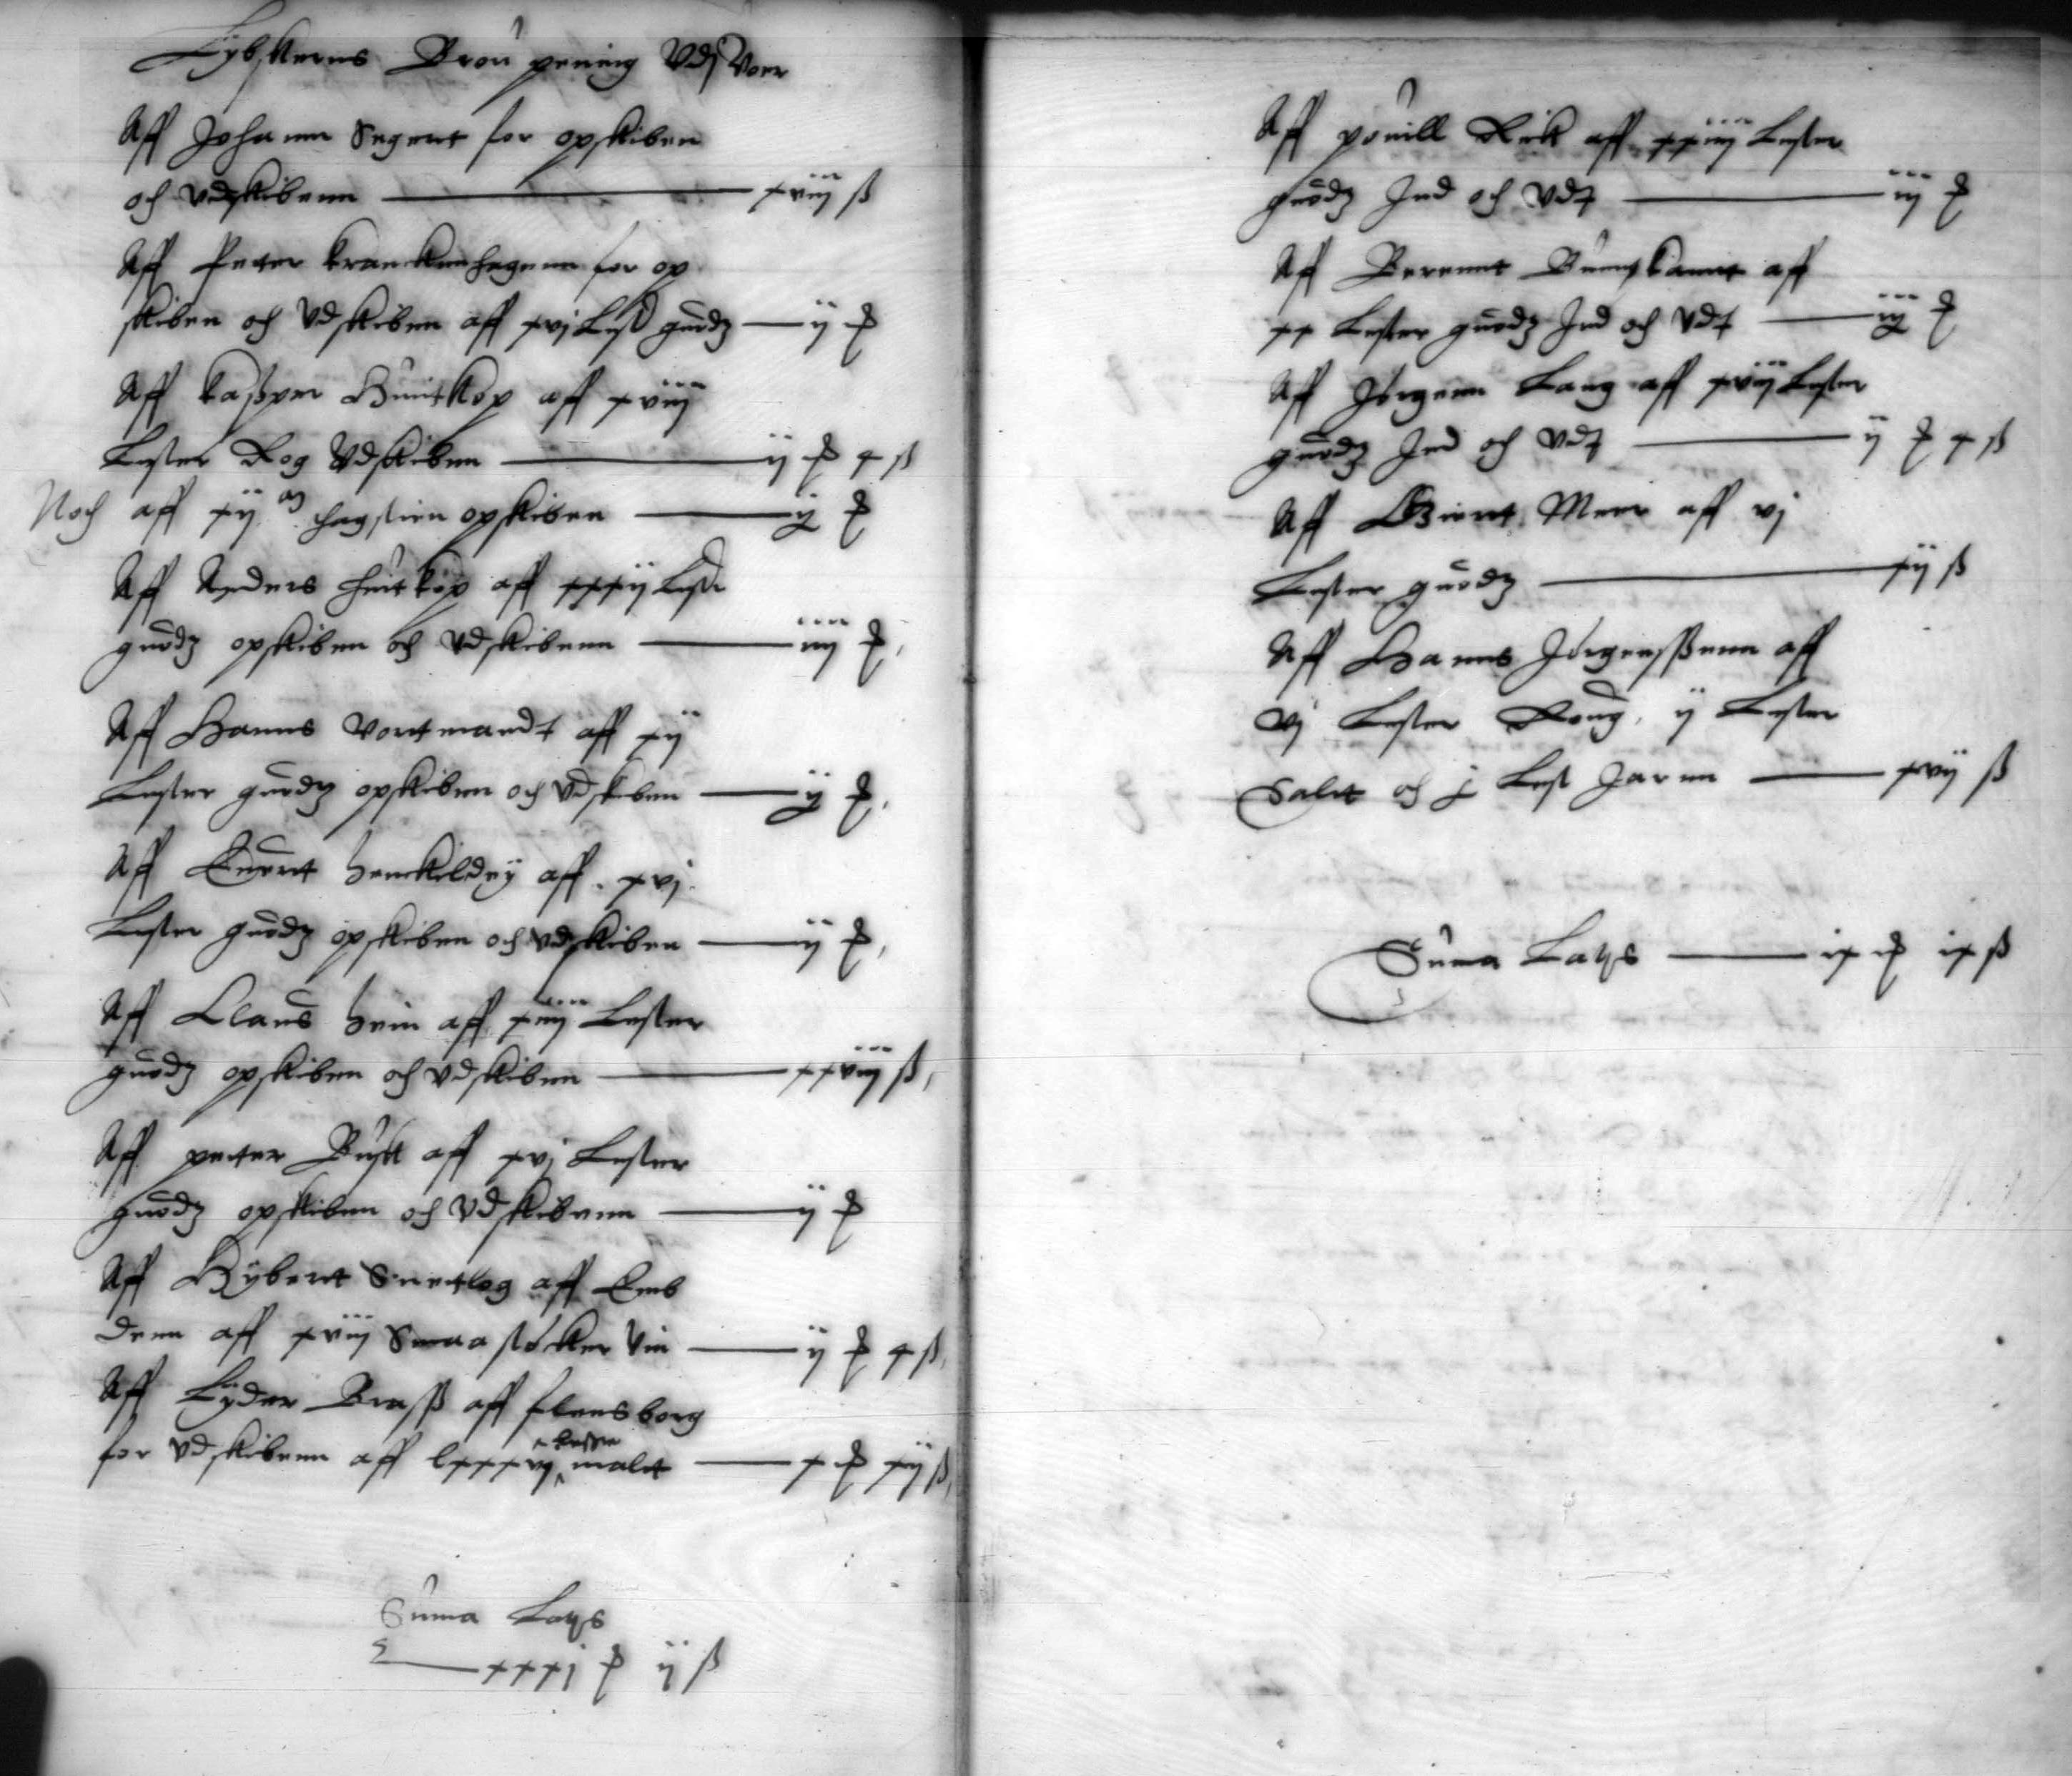 Lybskerns Brou pening Vdj Voer
Aff Johann Segert for opskiben
och vdskibenn — xviij ß
Aff Peter kranckenhagenn for op
skiben och Vdskiben aff xvj Lest guodz — ij
Aff kasper Huitkop aff xviij
Lester Rog Vdskiben — ij 4 ß
Noch aff xij opskiben — ij
Aff Anders huitkop aff xxxij Lester
guodz opskiben och Vdskibenn — iiij
Aff Hanns Vortmandt aff xij
Lester guodz opskiben och Vdskiben — ij
Aff Euert henckeldey aff xvj
Lester guodz opskiben och vdskiben — ij
Aff Claus hein aff xiiij Lester
guodz opskiben och vdskiben — xxviij ß
Aff peter Busk aff xvj Lester
guodz opskiben och Vdskibenn — ij
Aff Hybert Snetlog aff Emb
denn aff xviij Smaa stöcker Vin — ij 4 ß
Aff Lyder Brass aff flensborg
for Vdskibenn aff lxxxvj lester malt — x xij ß
Suma Latzs
— xxxj ij ß
Aff pouill Rick aff xxiiij Lester
guodz Ind och Vdt — iij
Aff Berennt aff
xx Lester guodz Ind och Vdt — iij
Aff Jörgenn Lang aff xviij Lester
guodz Ind och Vdt — ij 4 ß
Aff Giert Meir aff vj
Lester guodz — xij ß
Aff Hanns Jörgenssenn aff
vj Lester Roug, ij Lester
Salt och j Lest Jarnn — xvij ß
Suma Latzs — ix ix ß